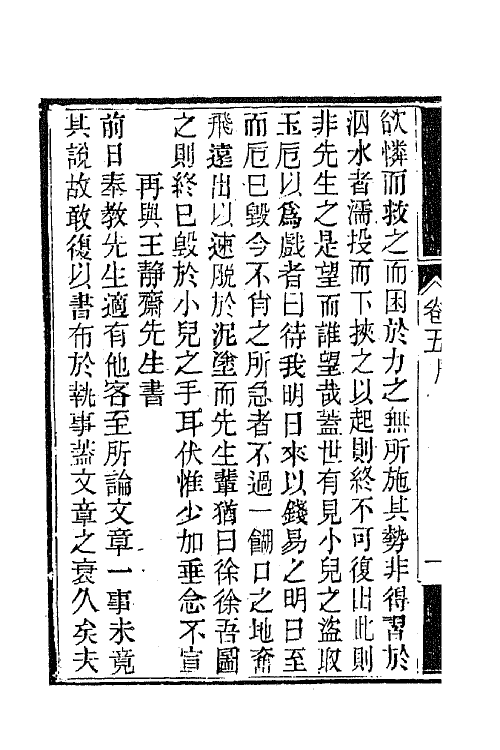 欲憐而救之而困於力之無所施其勢非得習於
泅水者濡投而下挾之以起則終不可復出此則
非先生之是望而誰望哉蓋世有見小兒之盜取
玉卮以爲戲者曰待我明日來以錢易之明日至
而卮已毀今不肖之所急者不過一餬口之地奮
飛遠出以速脫於泥塗而先生輩猶曰徐徐吾圖
之則終已毀於小兒之手耳伏惟少加垂念不宣
再與王靜齋先生書
前日奉教先生適有他客至所論文章一事未竟
其說故敢復以書布於執事蓋文章之衰久矣夫
卷五
一